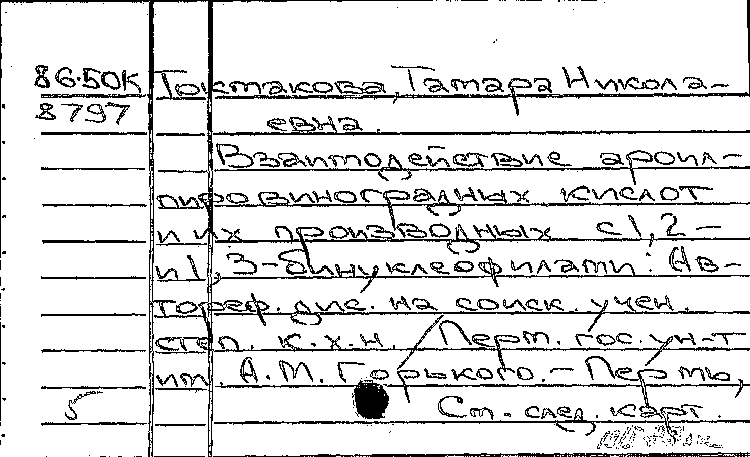 86-50К Токмакова, Тамара Никола-
8797 евна.
Взаимодействие ароил-
пировиноградных кислот
и их производных с 1,2-
и 1,3-бинуклеофилами: Ав-
тореф. дис. на соиск. учен.
степ. к.х.н. / Перм. гос. ун-т
им. А.М. Горького. - Пермь,
5 См. след. карт.